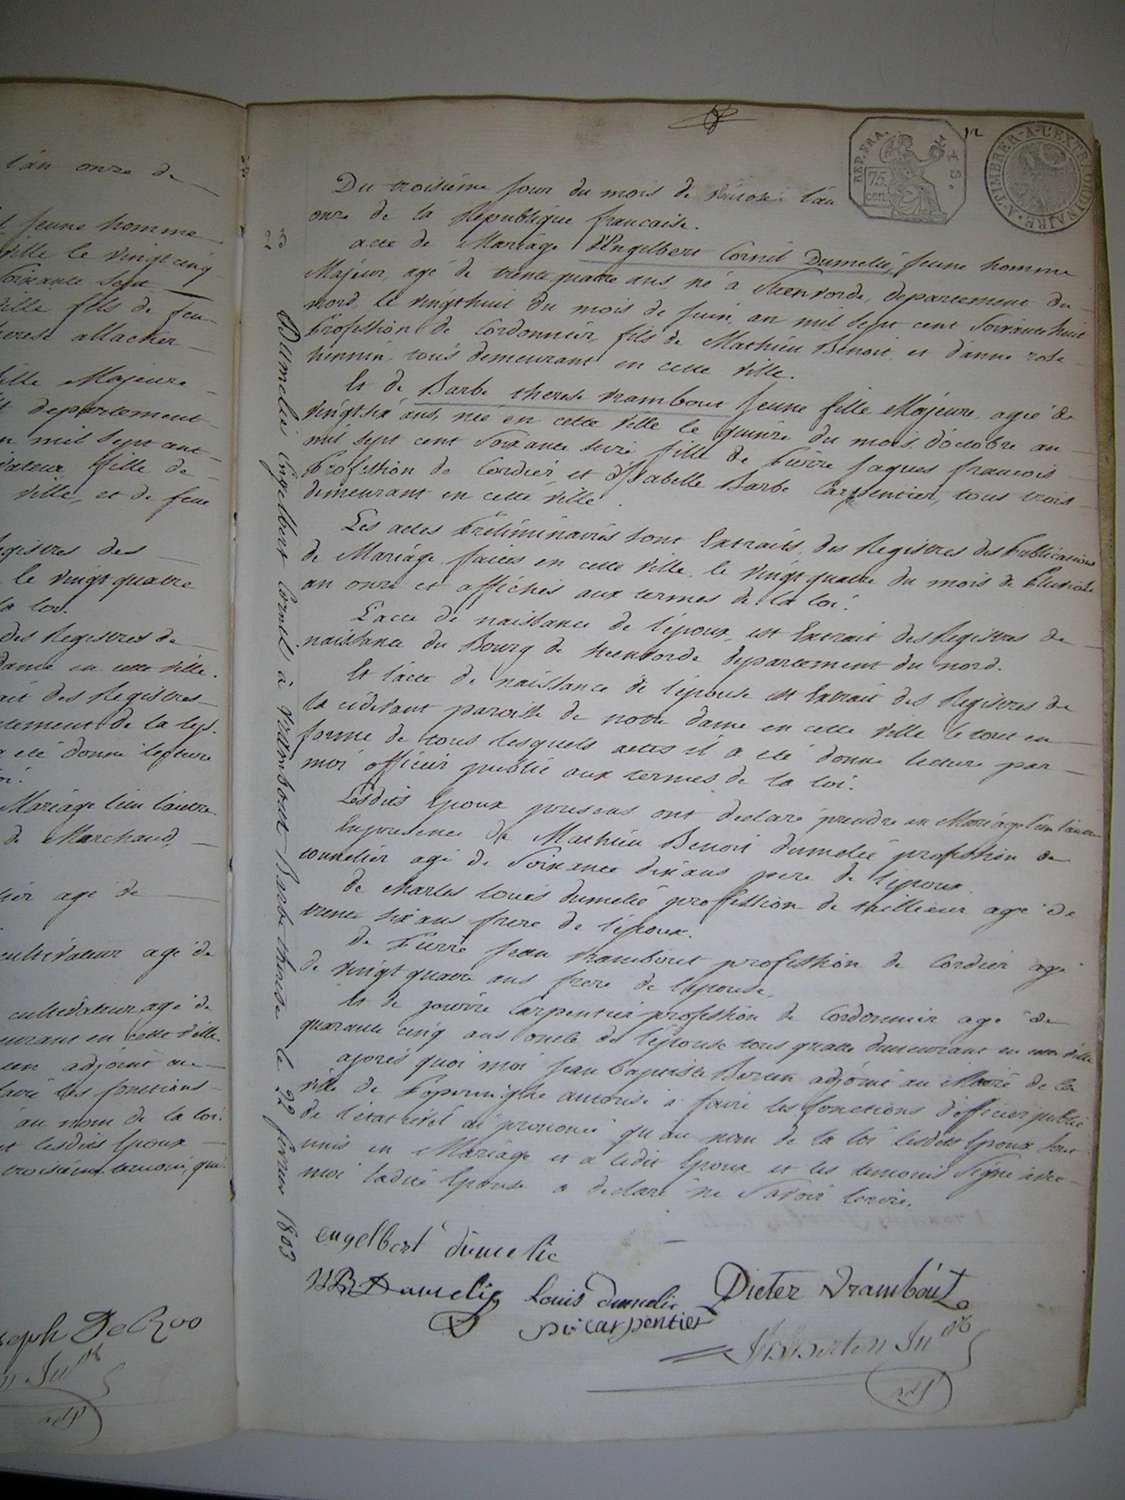 l'an onze de
jeune homme
ville le vingt cinq
soixante sept
ville fils de feu
therese allacker
fille Majeure
departement
n mil sept cent
fille de
ville, et de feue
registres des
le vingt quatre
la loi.
des Registres de
dame en cette ville.
ait des Registres
rtement de la Lys.
a été donné lecture
oi.
Mariage l'un l'autre
de Marchand
lier agé de
cultivateur agé de
cultivateur agé de
eurant en cette ville.
adjoint au
faire les fonctions
au nom de la loi
et lesdits Epoux
troisieme temoin, qui
seph De Roo
REP. FRA.
75 cen
A TIMBRER A L'EXTRAORDINAIRE
Du troisième jour du mois de l'an
onze de la Republique francaise.
acte de Mariage d'Engelbert Cornil Dumelié, jeune homme
Majeur, agé de trente quatre ans né à Steenvorde, departement du
nord, le vingt huit du mois de juin, an mil sept cent soixante huit
Profession de Cordonnier, fils de Mathieu Benoit, et d'anne rose
hennin, tous demeurant en cette ville.
Et de Barbe therese vrambout jeune fille Majeure, agée de
vingt six ans, née en cette ville le quinze du mois d'octobre an
mil sept cent soixante seize fille de Pierre jaques francois
Profession de Cordier et d'Isabelle Barbe Carpentier, tous trois
demeurant en cette ville.
Les actes Préliminaires sont Extraits des Registres des Publications
de Mariage faites en cette ville, le vingt quatre du mois de Pluviose
an onze et affichés aux termes de la loi.
L'acte de naissance de l'époux, est Extrait des Registres de
naissance du Bourg de steenvorde departement du nord.
Et l'acte de naissance de l'épouse est Extrait des Registres de
la cidevant paroisse de notre dame en cette ville le tout en
forme de tous lesquels actes il a été donné lecture par
moi officier public aux termes de la loi.
Lesdits Epoux presens ont declaré prendre en Mariage l'un l'autre
En presence de Mathieu Benoit dumelié profession de
tonnelier agé de soixante dix ans pere de l'époux.
de charles louis dumelié profession de taillieur agé de
trente six ans frere de l'époux.
de Pierre jean vrambout profession de Cordier agé
de vingt quatre ans frere de l'épouse.
Et de Carpentier profession de Cordonnier agé de
quarante cinq ans oncle de l'épouse tous quatre demeurant en cette ville
après quoi moi jean baptiste adjoint au Maire de la
ville de Poperinghe autorisé a faire les fonctions d'officier public
de l'état civil ai prononcé qu'au nom de la loi lesdits Epoux sont
unis en Mariage et a ledit Epoux et les temoins signé avec
moi ladite Epouse a declaré ne savoir ecrire.
engelbert dumelie
MB Dumelie Louis dumelie Pieter Vramboút
carpentier
Dumelie Engelbert Cornil à vrambout Barbe therese le 22 fevrier 1803